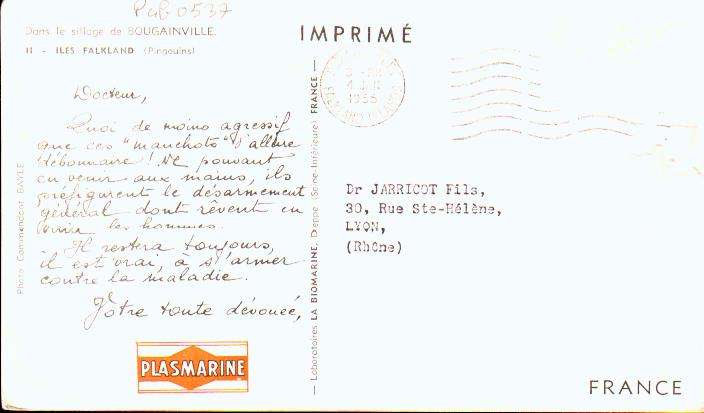 Pub 0537
Dans le sillage de BOUGAINVILLE.
II - ILES FALKLAND (Pingouins)
IMPRIMÉ
1955
FALKLAND ISLANDS
Docteur,
Quoi de moins agressif
que ces "manchots" d'allure
débonnaire! Ne pouvant
en venir aux mains, ils
préfigurent le désarmement
général dont rêvent en
les hommes.
Il restera toujours,
il est vrai, à s'armer
contre la maladie.
Votre toute dévouée,
PLASMARINE
Photo Commandant BAYLE
Laboratoires LA BIOMARINE, Dieppe (Seine-Inférieure) FRANCE
Dr JARRICOT Fils,
30, Rue Ste-Hélène,
LYON,
(Rhône)
FRANCE